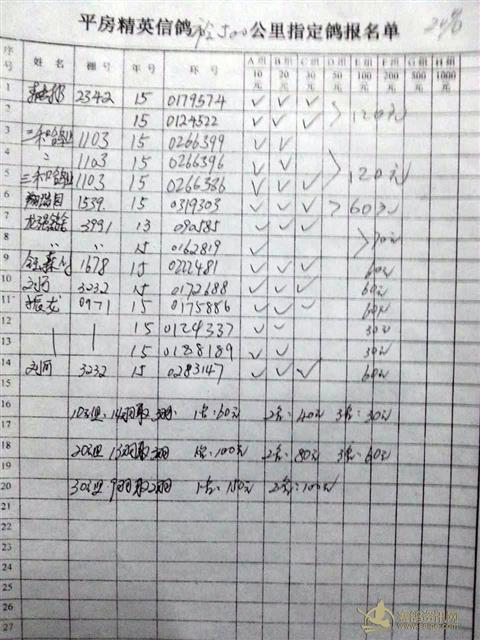 平房精英信鸽 500公里指定鸽报名单
序号 姓名 棚号 年号 环号 A组10元 B组20元 C组30元 D组50元 E组100元 F组200元 G组500元 H组1000元
1 2342 15 0179574 ✓ ✓ ✓
2 15 0124522 ✓ ✓ ✓ 120元
3 三和鸽业 1103 15 0266399 ✓ ✓
4 〃 1103 15 0266396 ✓ ✓
5 三和鸽业 1103 15 0266386 ✓ ✓ ✓ 120元
6 1539 15 0319303 ✓ ✓ ✓ 60元
7 3991 13 090585 ✓ ✓ ✓
8 〃 15 0162819 ✓ 70元
9 1678 15 0222481 ✓ ✓ ✓ 60元
10 刘河 3232 15 0172688 ✓ ✓ ✓ 60元
11 振龙 0971 15 0175886 ✓ ✓ ✓ 60元
12 15 0124337 ✓ ✓ 30元
13 15 0188189 ✓ ✓ 30元
14 刘河 3232 15 0283147 ✓ ✓ ✓ 60元
15
16 10元组:14羽取3羽 1名:60元 2名:40元 3名:30元
17
18 20元组 13羽取3羽 1名:100元 2名:80元 3名:60元
19
20 30元组:9羽取2羽 1名:150元 2名:100元
21
22
23
24
25
26
27